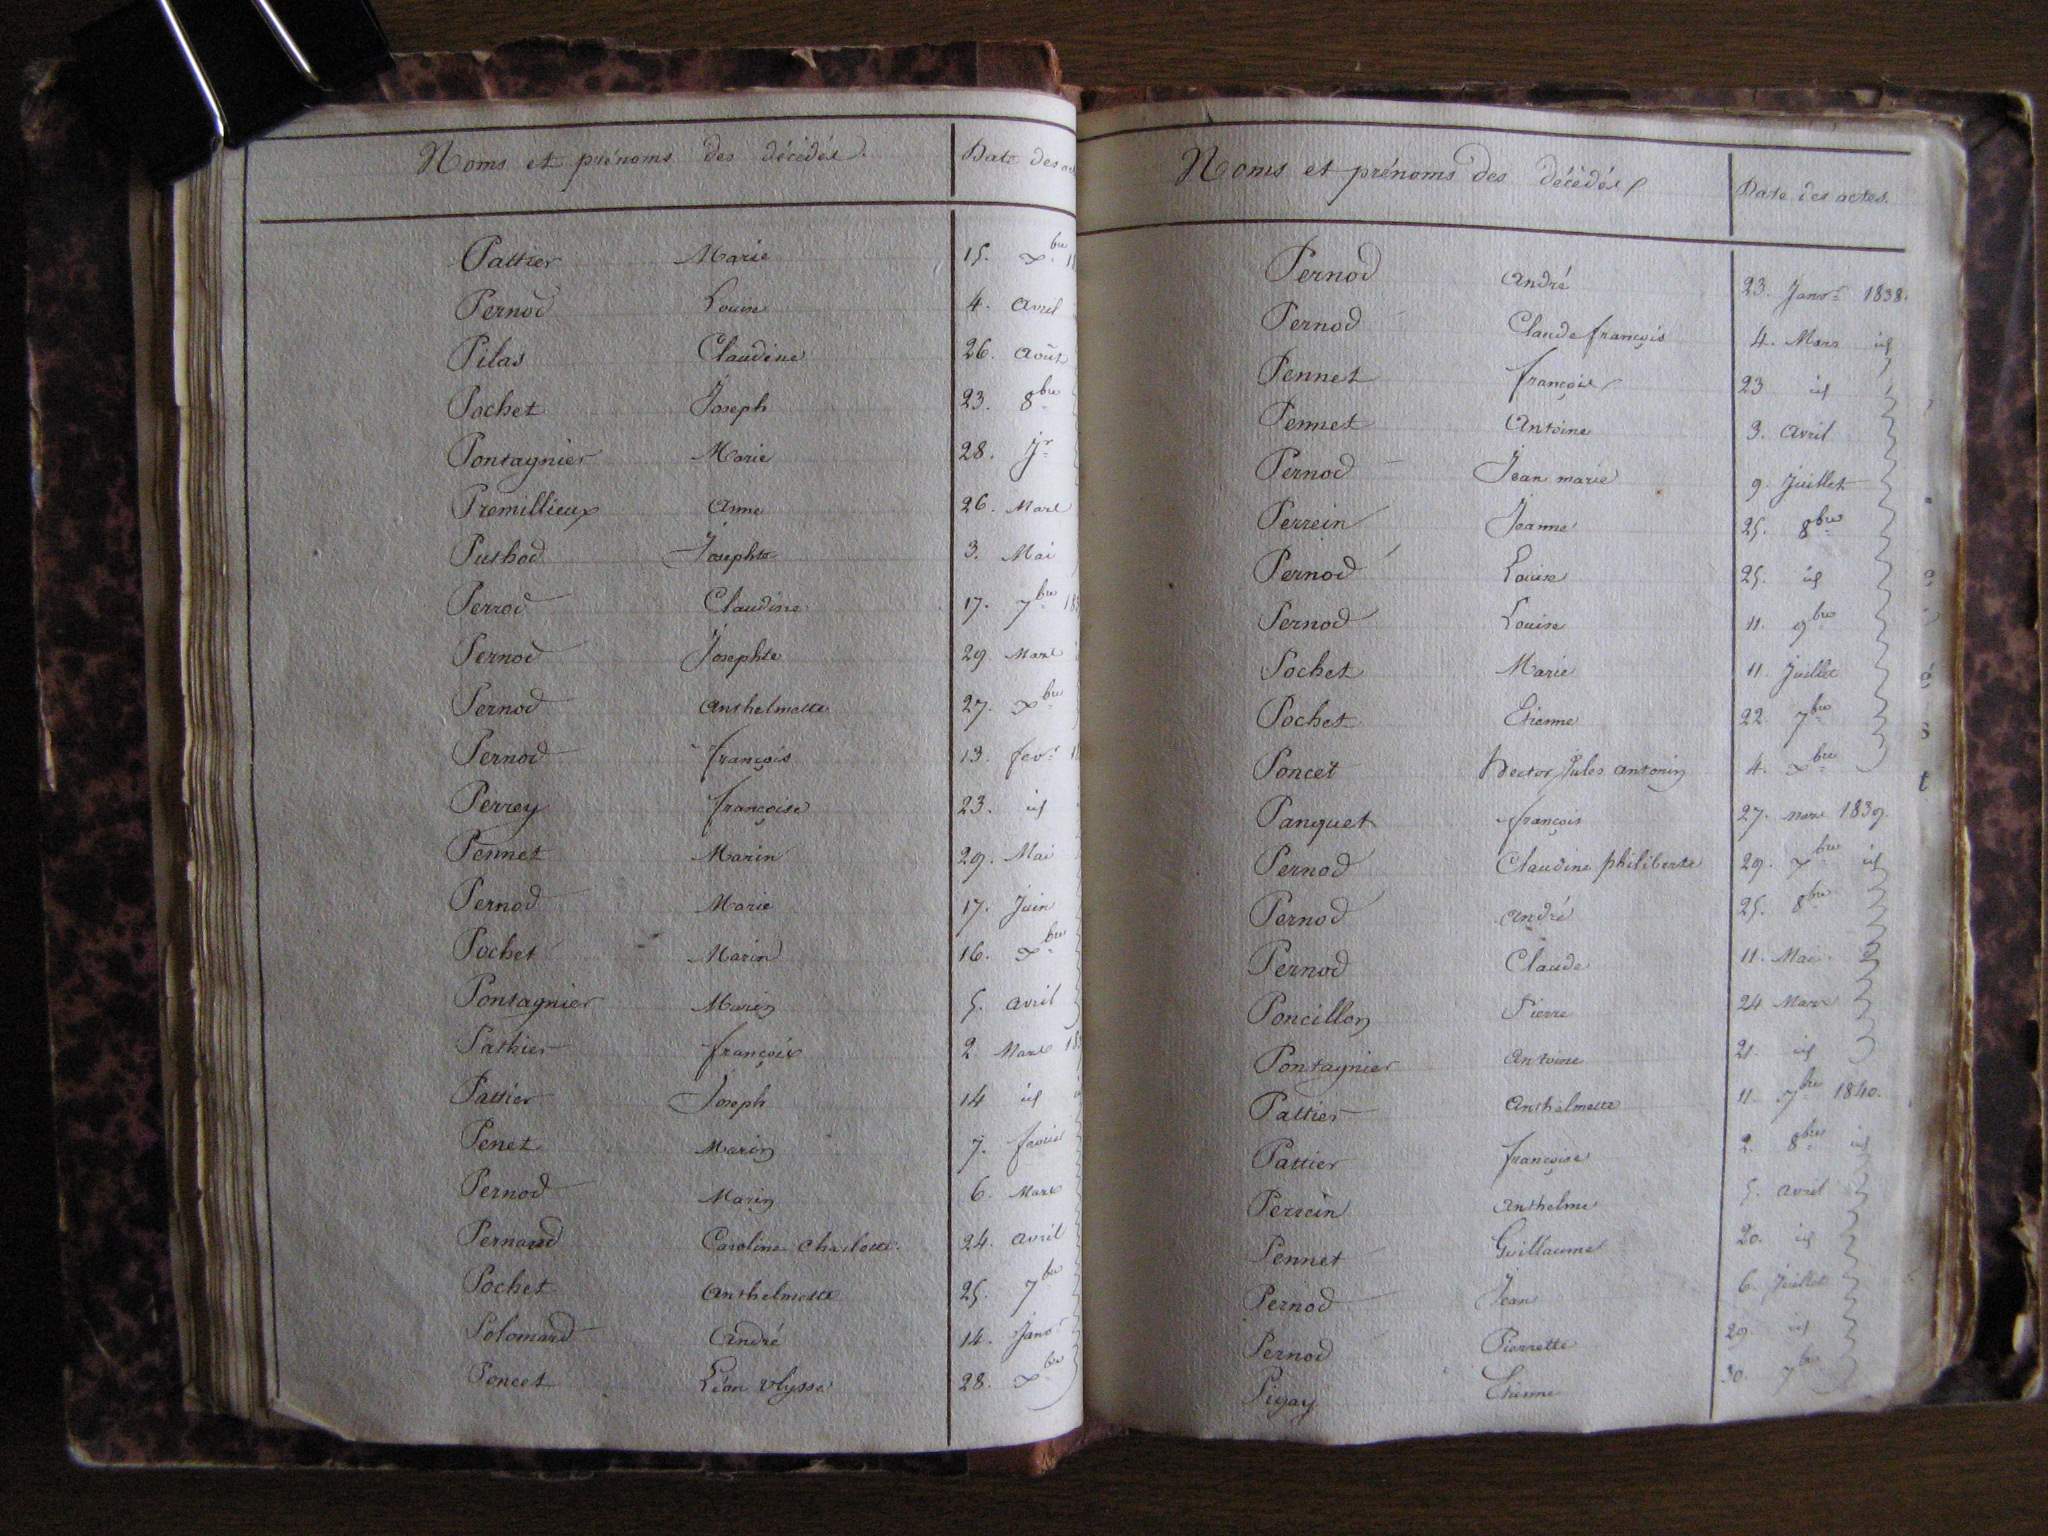 Noms et prénoms des décédés.
Date des
Pattier Marie 15. Xbre
Pernod Louise 4. avril
Pilas Claudine 26. août
Pochet Joseph 23. 8bre
Pontagnier Marie 28. Jr
Premillieux anne 26. Mars
Puthod Josephte 3. Mai
Perrod Claudine 17. 7bre
Pernod Josephte 29 Mars
Pernod anthelmette 27. Xbre
Pernod françois 13. fevr
Perrey françoise 23. id
Pennet Marin 29. Mai
Pernod Marie 17. Juin
Pochet Marin 16. Xbre
Pontagnier Marin 5. avril
Pathier françois 2. Mars
Pattier Joseph 14 id
Penet Marin 7. fevrier
Pernod Marin 6. Mars
Pernaud Caroline Charlotte. 24. avril
Pochet anthelmette 25. 7bre
Polomard andré 14. Janvr
Poncet Léon Ulysse 28. Xbre
Noms et prénoms des décédés
Date des actes.
Pernod andré 23. Janvr 1838.
Pernod Claude françois 4. Mars id
Pennet françois 23 id
Pennet antoine 3. avril
Pernod Jean marie 9. Juillet
Perrein Jeanne 25. 8bre
Pernod Louise 25. id
Pernod Louise 11. 9bre
Pochet Marie 11. Juillet
Pochet Etienne 22. 7bre
Poncet hector Jules antonin 4. Xbre
Panquet françois 27. mars 1839.
Pernod Claudine philiberte 29. 7bre id
Pernod andré 25. 8bre
Pernod Claude 11. Mai
Poncillon Pierre 24 Mars
Pontagnier antoine 21. id
Pattier anthelmette 11. 7bre 1840.
Pattier françoise 2. 8bre id
Perrein anthelme 5. avril
Pennet Guillaume 20. id
Pernod Jean 6. Juillet
Pernod Pierrette 29. id
Pigay Etienne 30. 7bre